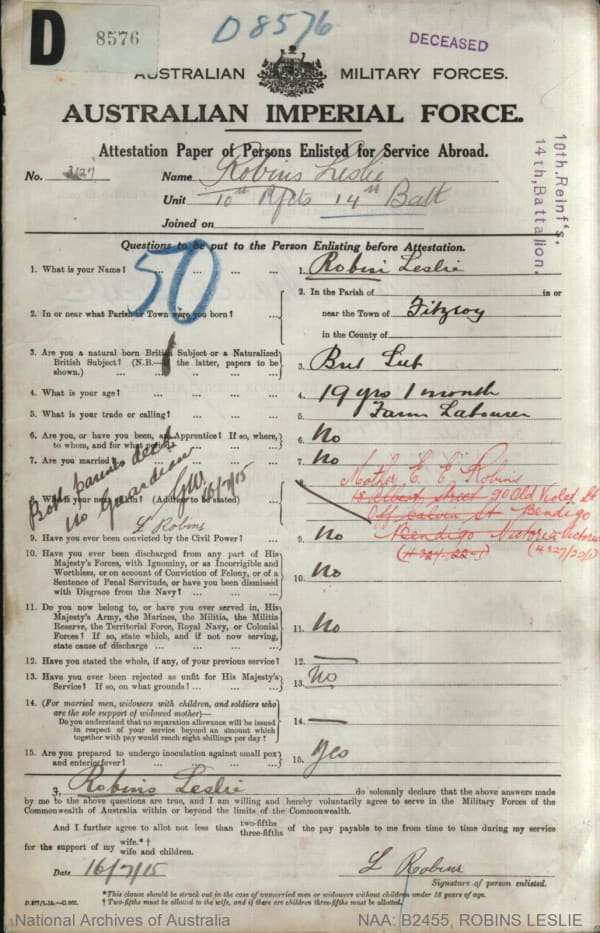 D 8576
D8576
DECEASED
AUSTRALIAN MILITARY FORCES.
AUSTRALIAN IMPERIAL FORCE.
Attestation Paper of Persons Enlisted for Service Abroad.
No. 3127 Name Robins Leslie
Unit 10th Rfcts 14th Batt
Joined on
10th, Reinf's.
14th, Battalion.
Questions to be put to the Person Enlisting before Attestation.
50
1. What is your Name? ... ... ... ... 1. Robins Leslie
2. In or near what Parish or Town were you born? ... 2. In the Parish of in or
near the Town of Fitzroy
in the County of
3. Are you a natural born British Subject or a Naturalized
British Subject? (N.B.—If the latter, papers to be
shown.) ... ... ... ... 3. Brit Sub
4. What is your age? ... ... ... ... 4. 19 yrs 1 month
5. What is your trade or calling? ... ... ... 5. Farm Labourer
6. Are you, or have you been, an Apprentice? If so, where,
to whom, and for what period? ... ... 6. No
7. Are you married? ... ... ... 7. No
Both parents dead
no guardian
GW. 16/7/15
8. Who is your next of kin? (Address to be stated) 8. Mother E. E. Robins
18 Albert Street 90 Old Violet St
Off Calvin St Bendigo
Bendigo Victoria Victoria
L Robins
9. Have you ever been convicted by the Civil Power? ... 9. No
10. Have you ever been discharged from any part of His
Majesty's Forces, with Ignominy, or as Incorrigible and
Worthless, or on account of Conviction of Felony, or of a
Sentence of Penal Servitude, or have you been dismissed
with Disgrace from the Navy? ... ... ... 10. No
11. Do you now belong to, or have you ever served in, His
Majesty's Army, the Marines, the Militia, the Militia
Reserve, the Territorial Force, Royal Navy, or Colonial
Forces? If so, state which, and if not now serving,
state cause of discharge ... ... ... 11. No
12. Have you stated the whole, if any, of your previous service? 12. —
13. Have you ever been rejected as unfit for His Majesty's
Service? If so, on what grounds? ... ... ... 13. No
14. (For married men, widowers with children, and soldiers who
are the sole support of widowed mother)—
Do you understand that no separation allowance will be issued
in respect of your service beyond an amount which
together with pay would reach eight shillings per day? 14. —
15. Are you prepared to undergo inoculation against small pox
and enteric fever? ... ... ... ... 15. Yes
I, Robins Leslie do solemnly declare that the above answers made
by me to the above questions are true, and I am willing and hereby voluntarily agree to serve in the Military Forces of the
Commonwealth of Australia within or beyond the limits of the Commonwealth.
And I further agree to allot not less than two-fifths
three-fifths of the pay payable to me from time to time during my service
for the support of my wife.*†
wife and children.
Date 16/7/15 L Robins
Signature of person enlisted.
*This clause should be struck out in the case of unmarried men or widowers without children under 18 years of age.
†Two-fifths must be allotted to the wife, and if there are children three-fifths must be allotted.
National Archives of Australia NAA: B2455, ROBINS LESLIE